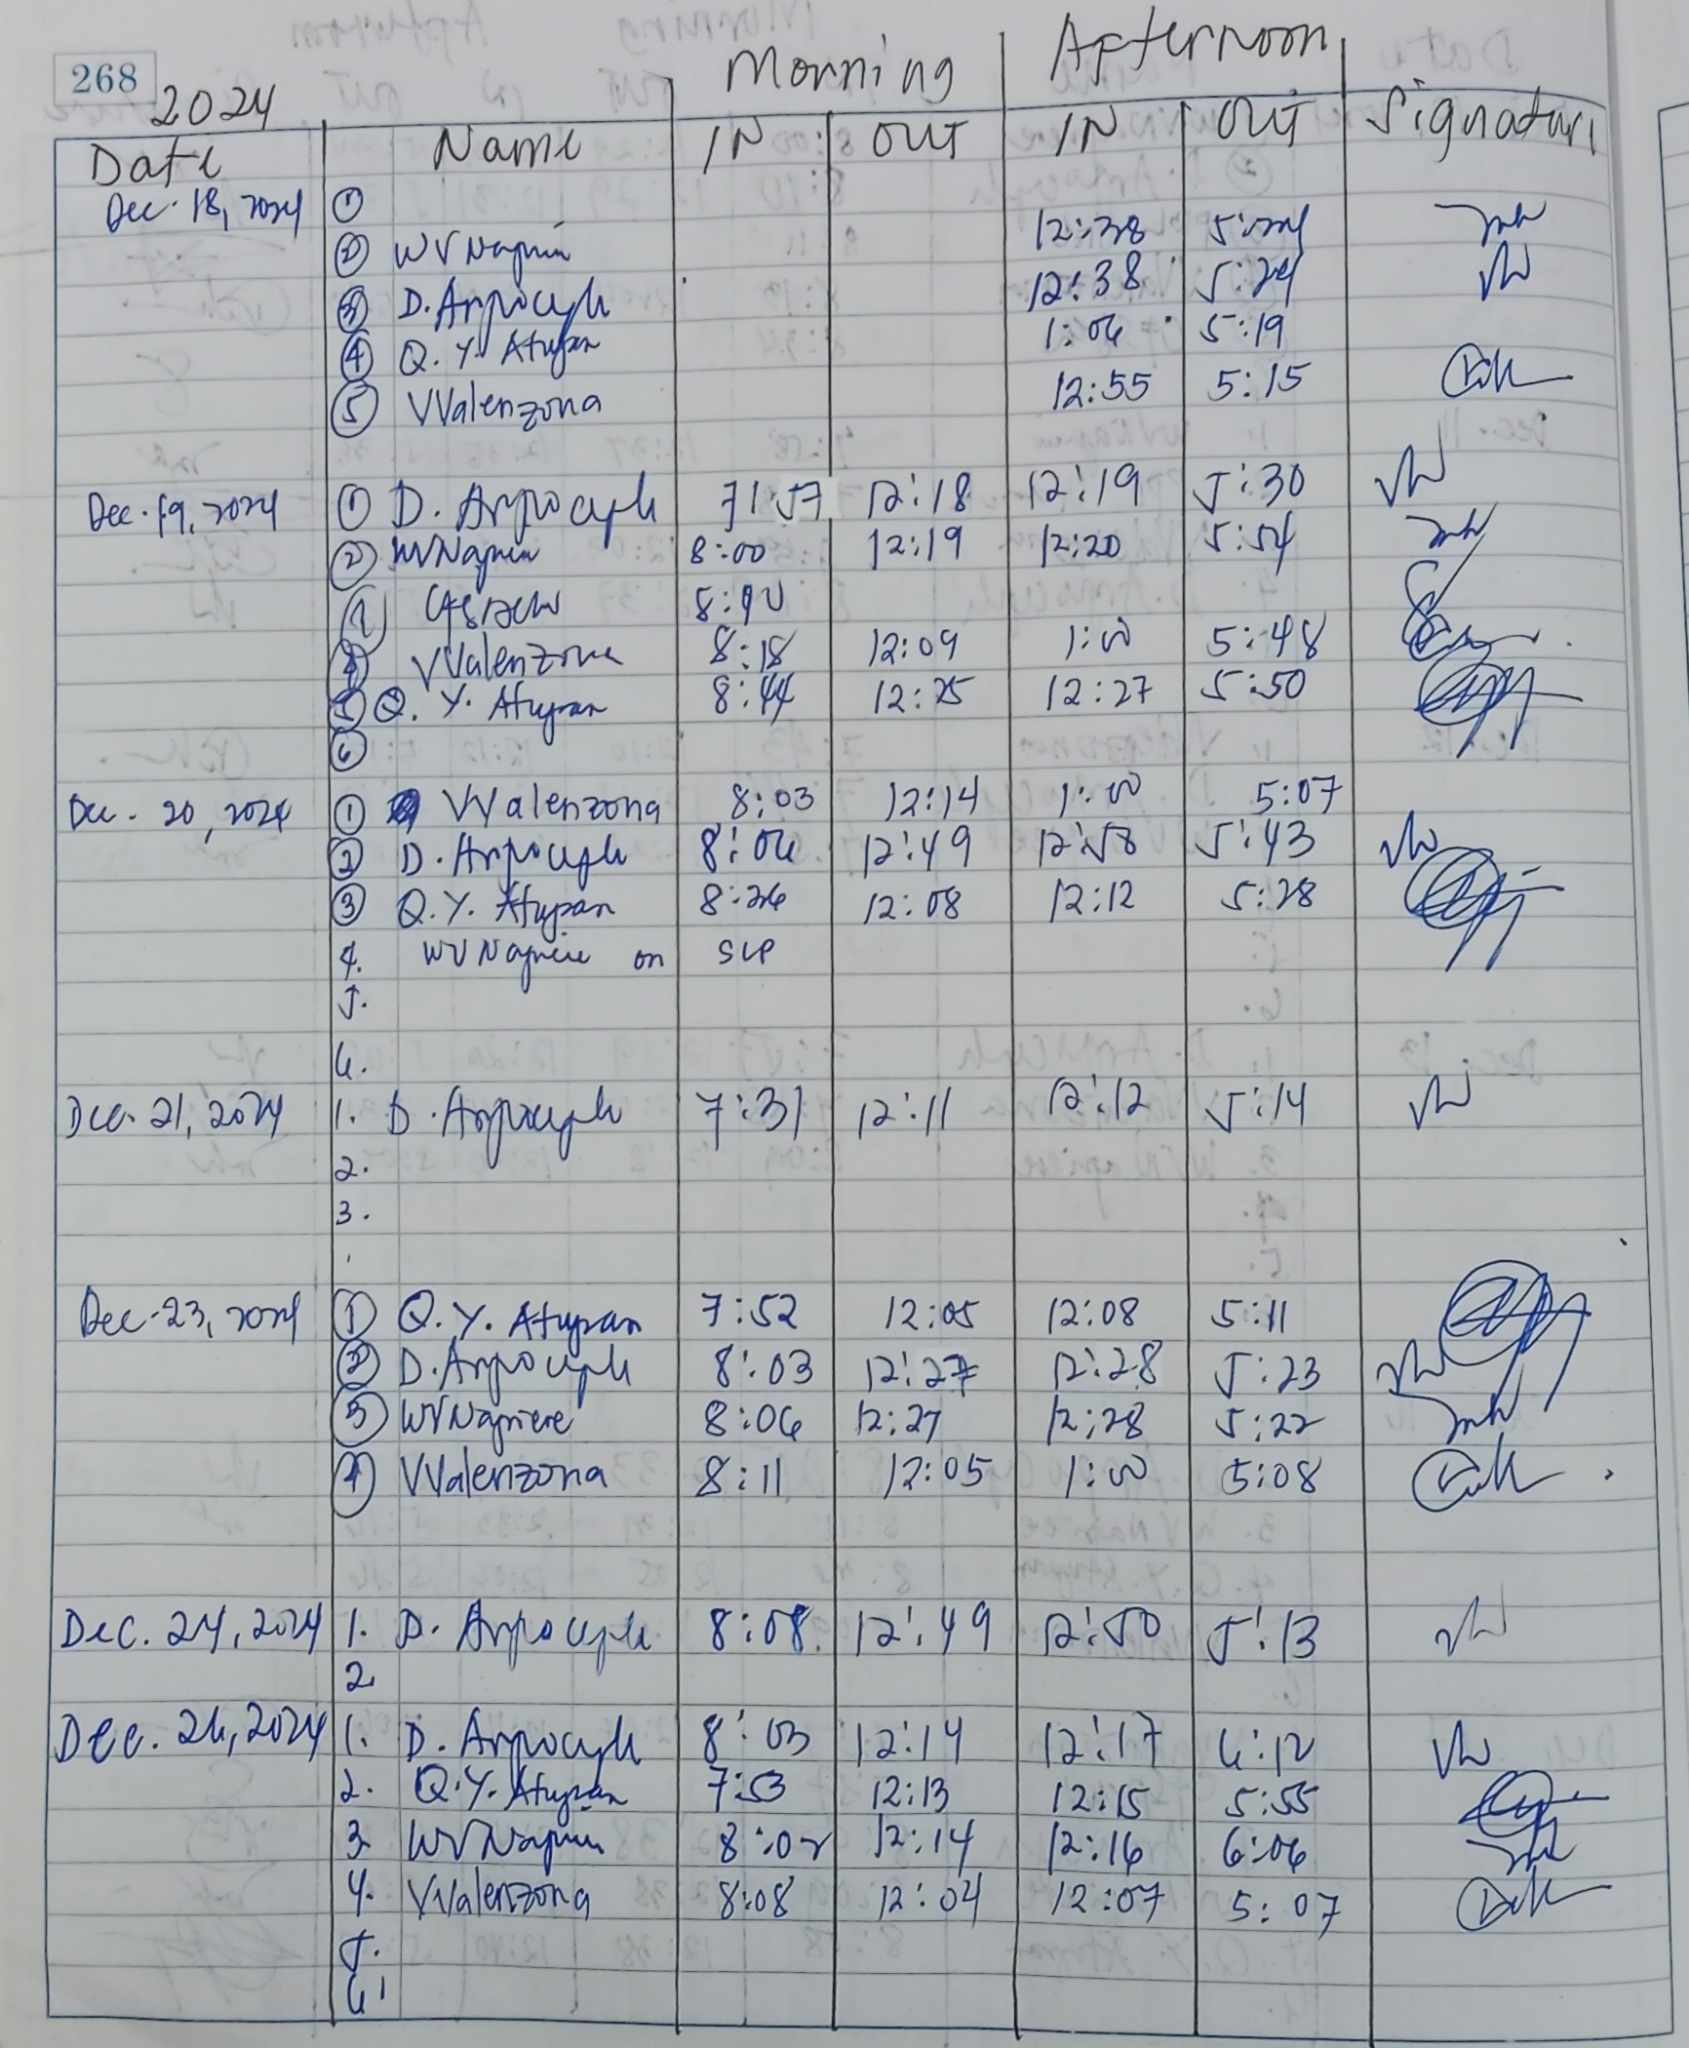 268
2024
Morning Afternoon
Date Name IN OUT IN OUT Signature
Dec. 18, 2024 ①
② WVNapiere 12:38 5:24
③ D. 12:38 5:24
④ Q. Y. Atupan 1:06 5:19
⑤ VValenzona 12:55 5:15
Dec. 19, 2024 ① D. 7:57 12:18 12:19 5:30
② WVNapiere 8:00 12:19 12:20 5:54
VValenzona 8:18 12:09 1:00 5:48
⑤ Q. Y. Atupan 8:44 12:25 12:27 5:50
⑥
Dec. 20, 2024 ① VValenzona 8:03 12:14 1:00 5:07
② D. 8:06 12:49 12:58 5:43
③ Q.Y. Atupan 8:26 12:08 12:12 5:28
4. WVNapiere on SLP
5.
6.
Dec. 21, 2024 1. D. 7:31 12:11 12:12 5:14
2.
3.
Dec. 23, 2024 ① Q. Y. Atupan 7:52 12:05 12:08 5:11
② D. 8:03 12:27 12:28 5:23
③ WVNapiere 8:06 12:27 12:28 5:22
④ VValenzona 8:11 12:05 1:00 5:08
Dec. 24, 2024 1. D. 8:08 12:49 12:50 5:13
2.
Dec. 26, 2024 1. D. 8:03 12:14 12:17 6:12
2. Q.Y. Atupan 7:53 12:13 12:15 5:55
3. WVNapiere 8:02 12:14 12:16 6:06
4. VValenzona 8:08 12:04 12:07 5:07
5.
6.